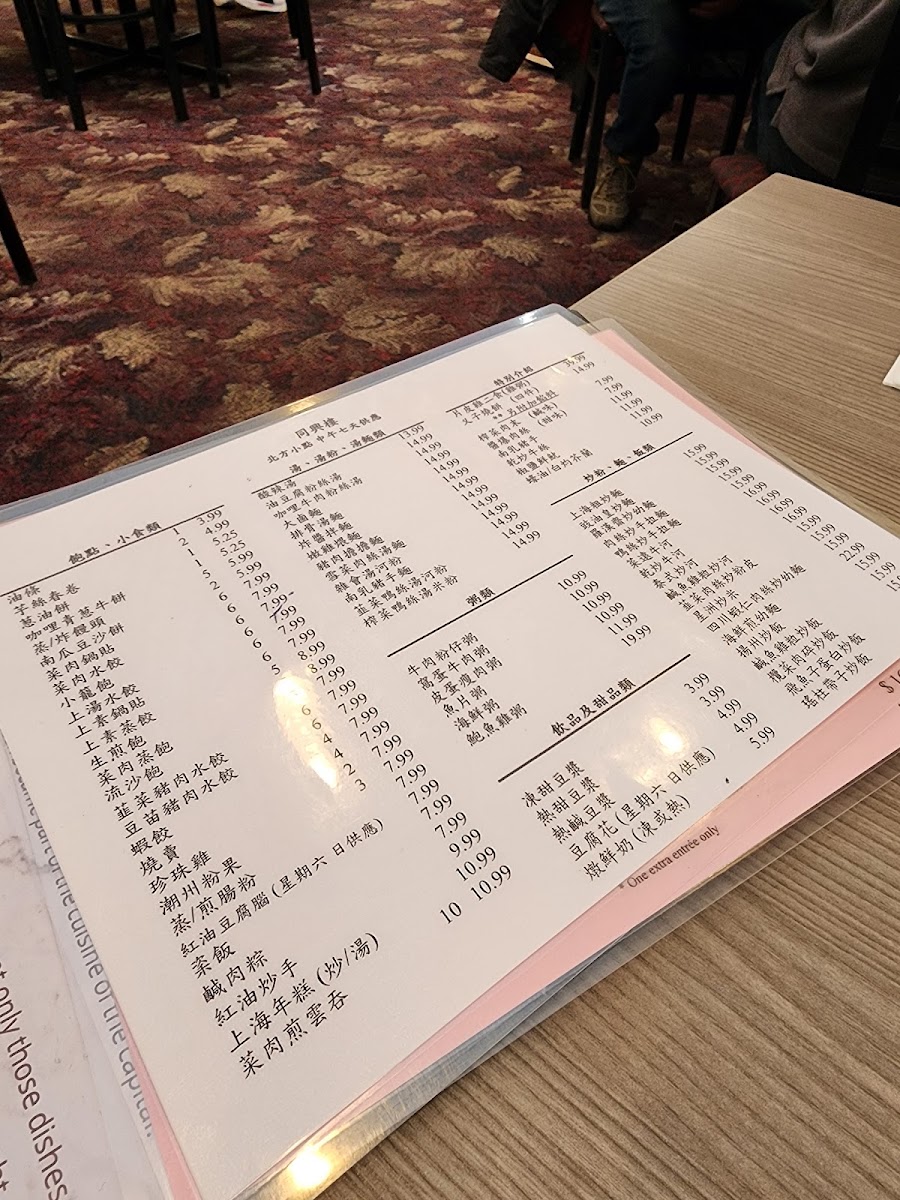 同興樓
北方小點 中午七天供應
飽點、小食類
油條 1 3.99
芋絲春卷 2 4.99
蔥油餅 1 5.25
咖哩青蔥牛餅 1 5.25
蒸/炸饅頭 5 5.99
南瓜豆沙餅 2 7.99
菜肉鍋貼 6 7.99
菜肉水餃
小籠飽
上湯水餃
上素鍋貼
上素蒸餃
生煎飽
菜肉蒸飽
流沙飽
韮菜豬肉水餃
豆苗豬肉水餃
蝦餃
燒賣
珍珠雞
潮州粉果
蒸/煎腸粉
紅油豆腐腦 (星期六 日供應)
粢飯
鹹肉粽
紅油炒手
上海年糕 (炒/湯)
菜肉煎雲吞 10 10.99
湯、湯粉、湯麵類
酸辣湯 13.99
油豆腐粉絲湯 14.99
咖哩牛肉粉絲湯 14.99
大鹵麵 14.99
排骨湯麵 14.99
炸醬拌麵
嫩雞煨麵
豬肉擔擔麵
雪菜肉絲湯麵
雜會湯河粉
南乳豬手麵
韮菜鴨絲湯河粉
榨菜鴨絲湯米粉 14.99
粥類
牛肉粉仔粥 10.99
窩蛋牛肉粥 10.99
皮蛋瘦肉粥 10.99
魚片粥 10.99
海鮮粥 11.99
鮑魚雞粥 19.99
飲品及甜品類
凍甜豆漿 3.99
熱甜豆漿 3.99
熱鹹豆漿 4.99
豆腐花 (星期六 日供應) 4.99
燉鮮奶 (凍或熱) 5.99
特別介紹
片皮雞二食(雞粥) 39.99
叉子燒餅 (四件) 14.99
** 另附加餡料
榨菜肉末 (鹹味) 7.99
醬爆肉絲 (甜味) 7.99
南乳豬手 11.99
乾炒牛絲 11.99
椒鹽鮮魷 11.99
蠔油/白灼芥蘭 10.99
炒粉、麵、飯類
上海粗炒麵 15.99
豉油皇炒麵 15.99
羅漢齋炒幼麵 15.99
肉絲炒手拉麵 15.99
鴨絲炒手拉麵
菜遠牛河
乾炒牛河
泰式炒河
鹹魚雞粒炒河
韮菜肉絲炒粉皮
星洲炒米
四川蝦仁肉絲炒幼麵
海鮮煎幼麵
揚州炒飯
鹹魚雞粒炒飯
欖菜肉碎炒飯
飛魚子蛋白炒飯
瑤柱帶子炒飯
* One extra entrée only
part of the cuisine of the capital.
only those dishes